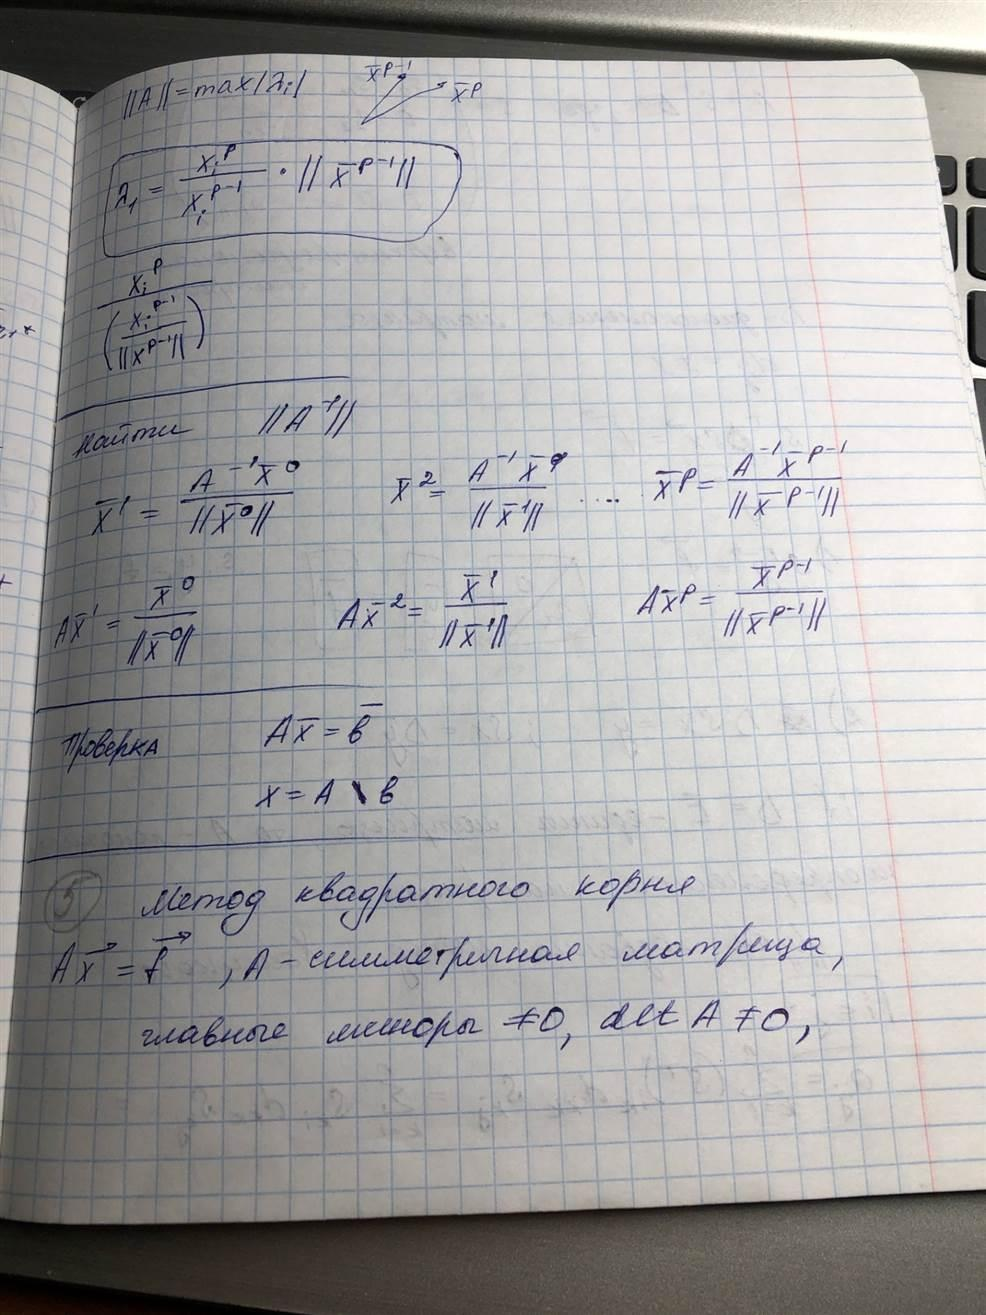 ||A|| = max|λi|
x̄^(p-1)
x̄^p
λ₁ = xᵢ^p / xᵢ^(p-1) · ||x̄^(p-1)||
xᵢ^p / (xᵢ^(p-1) / ||x^(p-1)||)
Найти ||A⁻¹||
x̄¹ = A⁻¹x̄⁰ / ||x̄⁰|| x̄² = A⁻¹x̄¹ / ||x̄¹|| ..... x̄^p = A⁻¹x̄^(p-1) / ||x̄^(p-1)||
Ax̄¹ = x̄⁰ / ||x̄⁰|| Ax̄² = x̄¹ / ||x̄¹|| Ax̄^p = x̄^(p-1) / ||x̄^(p-1)||
Проверка Ax̄ = b̄
x = A \ b
5 Метод квадратного корня
Ax⃗ = f⃗, A - симметричная матрица,
главные миноры ≠0, det A ≠0,